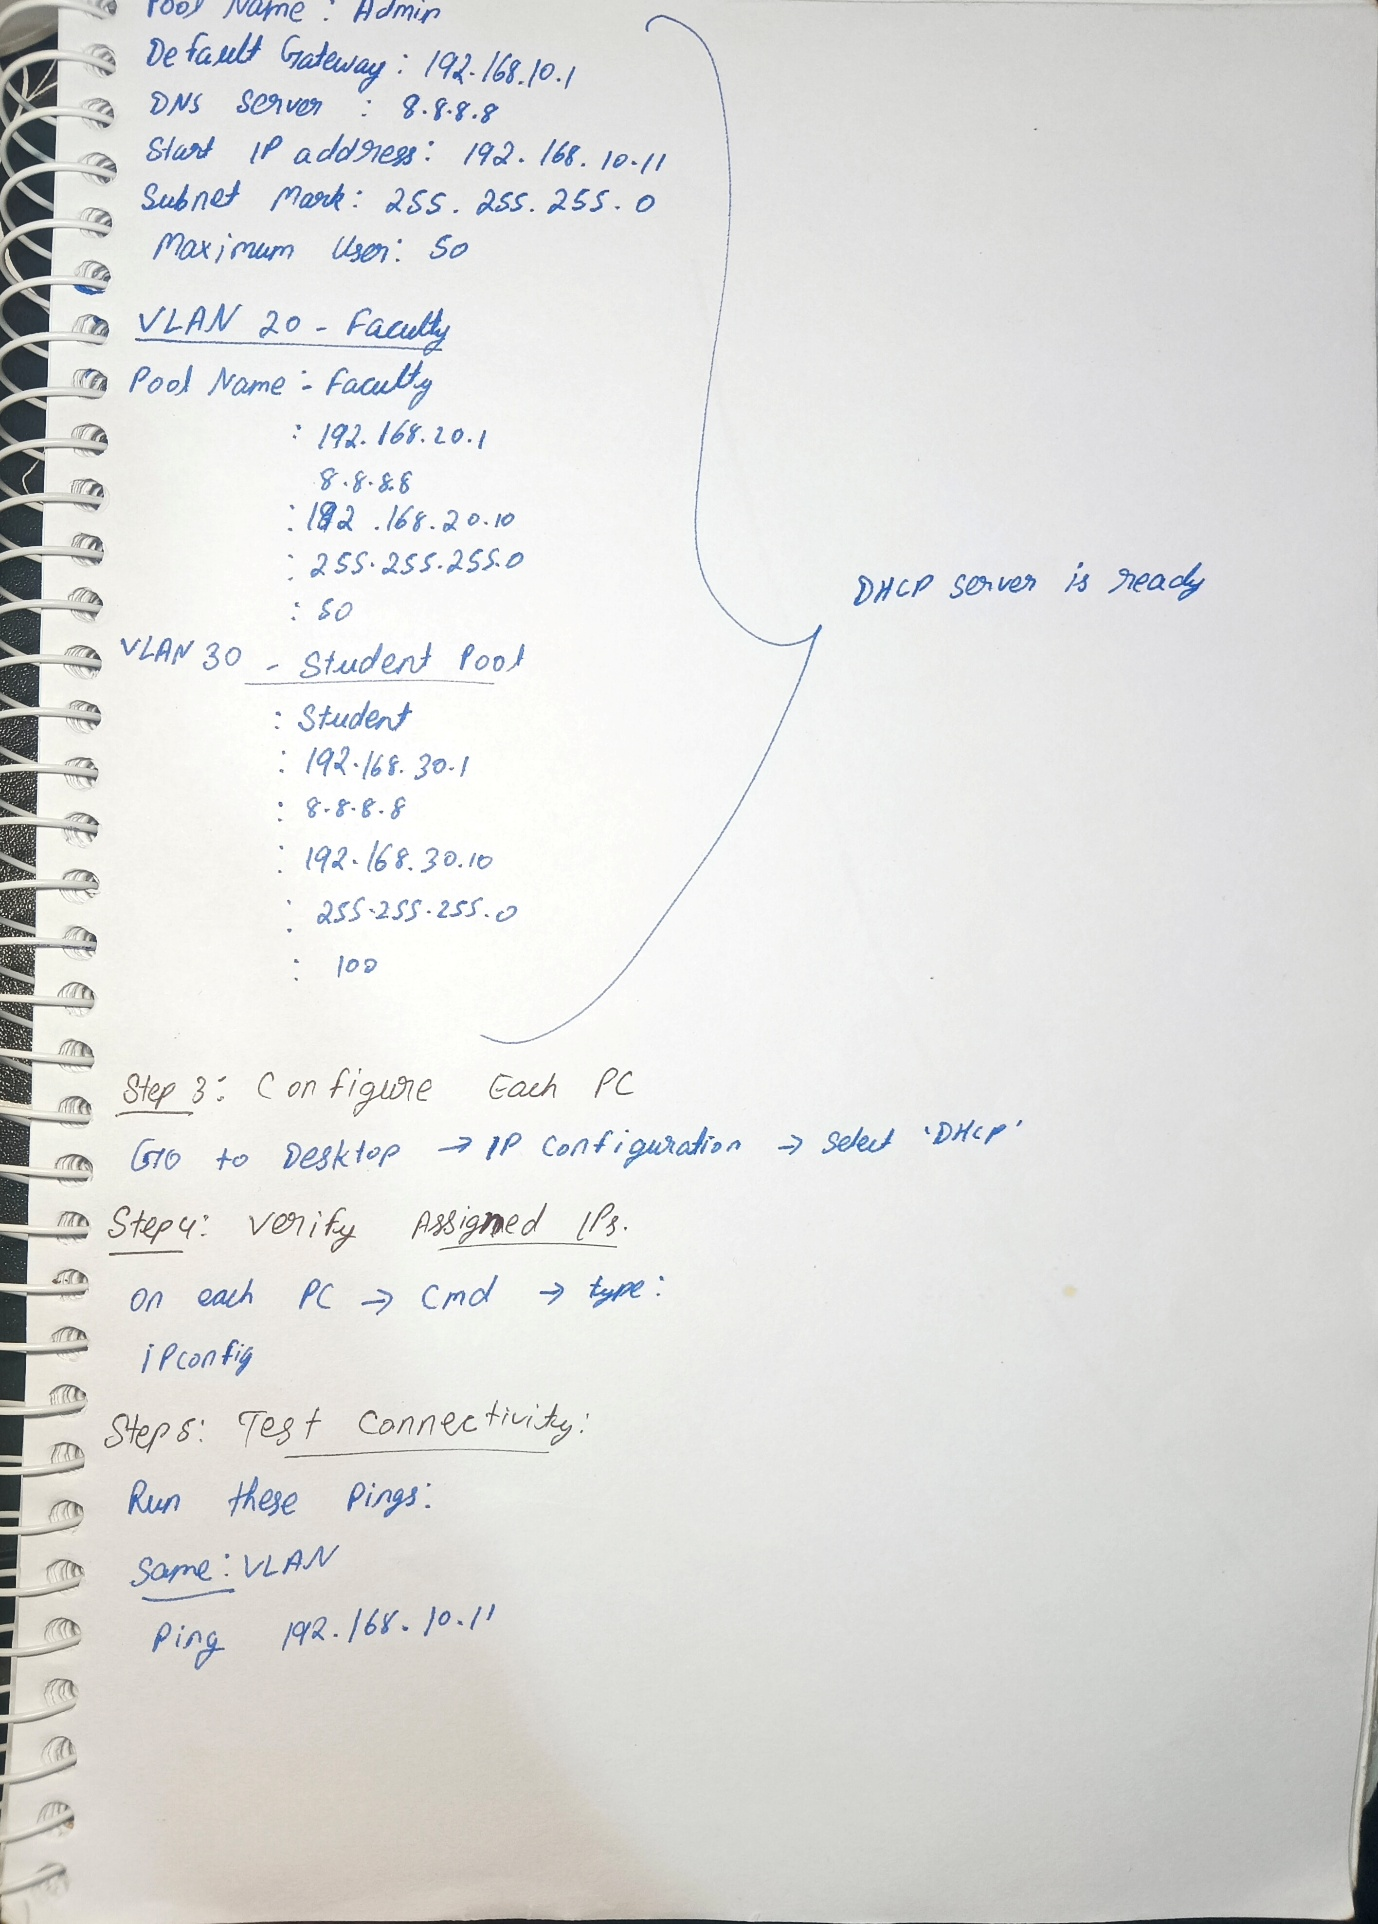 Pool Name : Admin
Default Gateway : 192.168.10.1
DNS server : 8.8.8.8
Start IP address : 192.168.10.11
Subnet Mark : 255.255.255.0
Maximum User : 50
VLAN 20 - Faculty
Pool Name :- Faculty
: 192.168.20.1
8.8.8.8
: 192.168.20.10
: 255.255.255.0
: 50
DHCP server is ready
VLAN 30 - Student Pool
: Student
: 192.168.30.1
: 8.8.8.8
: 192.168.30.10
: 255.255.255.0
: 100
Step 3: Configure Each PC
Go to Desktop → IP Configuration → Select 'DHCP'
Step 4: Verify Assigned IPs.
on each PC → Cmd → type:
ipconfig
Step 5: Test Connectivity:
Run these Pings:
Same: VLAN
Ping 192.168.10.11